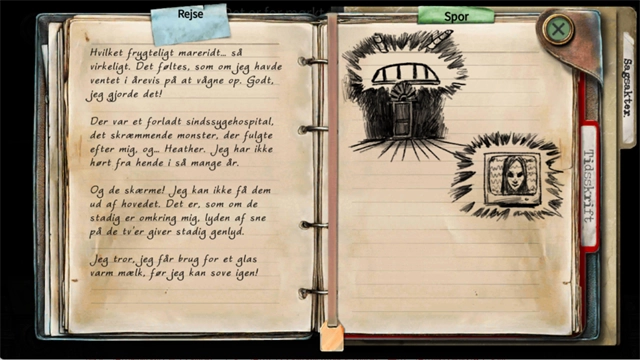 Rejse
Spor
Hvilket frygteligt mareridt... så
virkeligt. Det føltes, som om jeg havde
ventet i årevis på at vågne op. Godt,
jeg gjorde det!
Der var et forladt sindssygehospital,
det skræmmende monster, der fulgte
efter mig, og... Heather. Jeg har ikke
hørt fra hende i så mange år.
Og de skærme! Jeg kan ikke få dem
ud af hovedet. Det er, som om de
stadig er omkring mig, lyden af sne
på de tv'er giver stadig genlyd.
Jeg tror, jeg får brug for et glas
varm mælk, før jeg kan sove igen!
Sagsakter
Tidsskrift